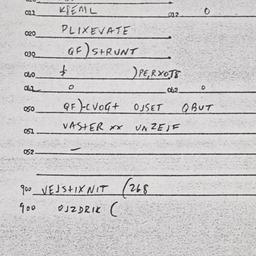 011 KJEAIL 012 0
020 PLIXEVATE
030 QF) STRUNT
060 )PE,RXOTS
061 0 062 0
050 QF)-CVOG+ OJSET QBUT
051 VASTER xx UNZEJF
052 –
900 VEJSTIXNIT (268
900 OJZDRIK (